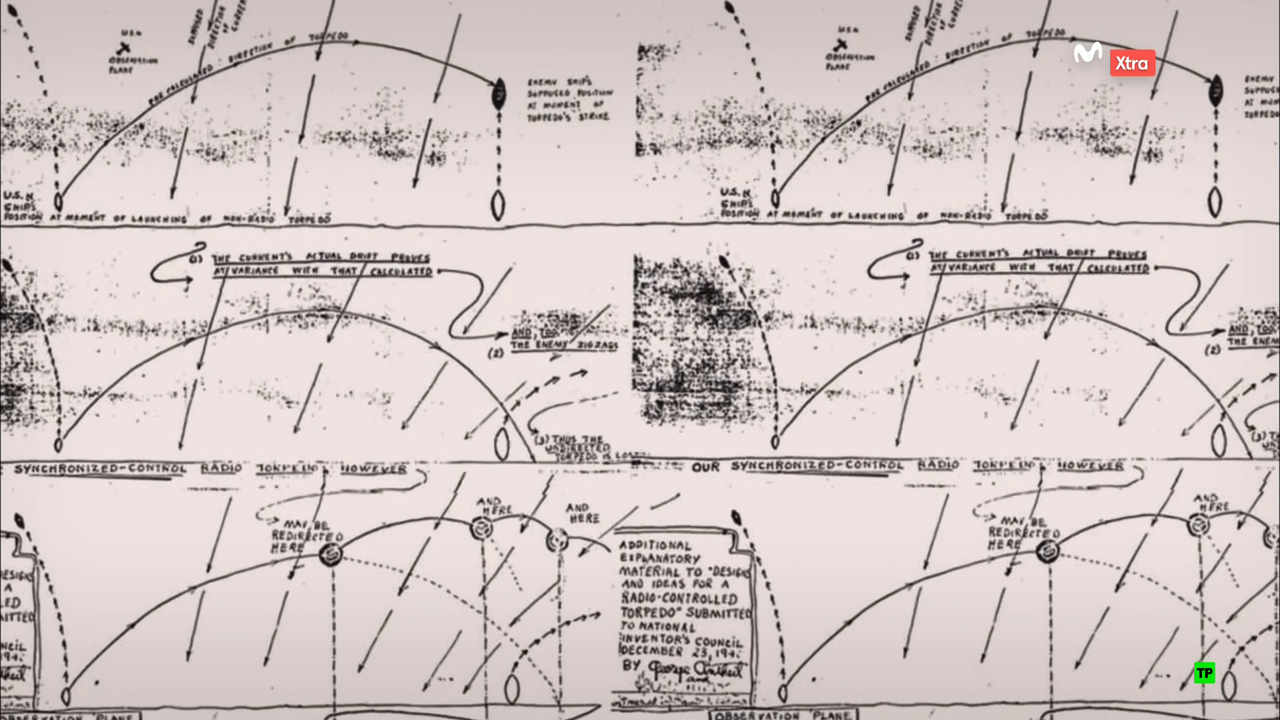 SUPPOSED
DIRECTION
OF CURRENT
U.S.N
OBSERVATION
PLANE
PRE CALCULATED DIRECTION OF TORPEDO
ENEMY SHIP'S
SUPPOSED POSITION
AT MOMENT OF
TORPEDO'S STRIKE
U.S. N
SHIP'S
POSITION AT MOMENT OF LAUNCHING OF NON-RADIO TORPEDO
U.S.N
OBSERVATION
PLANE
PRE CALCULATED DIRECTION OF TORPEDO
Xtra
ENEMY
SUPPOSED
AT MOM
TORPED
U.S. N
SHIP'S
POSITION AT MOMENT OF LAUNCHING OF NON-RADIO TORPEDO
(1) THE CURRENT'S ACTUAL DRIFT PROVES
AT VARIANCE WITH THAT CALCULATED
(2) AND, TOO,
THE ENEMY ZIGZAGS
(3) THUS THE
UNDIRECTED
TORPEDO IS LOST
(1) THE CURRENT'S ACTUAL DRIFT PROVES
AT VARIANCE WITH THAT CALCULATED
(2) AND, TOO
THE ENEM
(3) T
SYNCHRONIZED-CONTROL RADIO TORPEDO HOWEVER
MAY BE
REDIRECTED
HERE
AND
HERE
AND
HERE
OUR SYNCHRONIZED-CONTROL RADIO TORPEDO HOWEVER
MAY BE
REDIRECTED
HERE
AND
HERE
ADDITIONAL
EXPLANATORY
MATERIAL TO "DESIGNS
AND IDEAS FOR A
RADIO-CONTROLLED
TORPEDO" SUBMITTED
TO NATIONAL
INVENTOR'S COUNCIL
DECEMBER 23, 194
BY George Antheil
and
OBSERVATION PLANE
OBSERVATION PLANE
TP